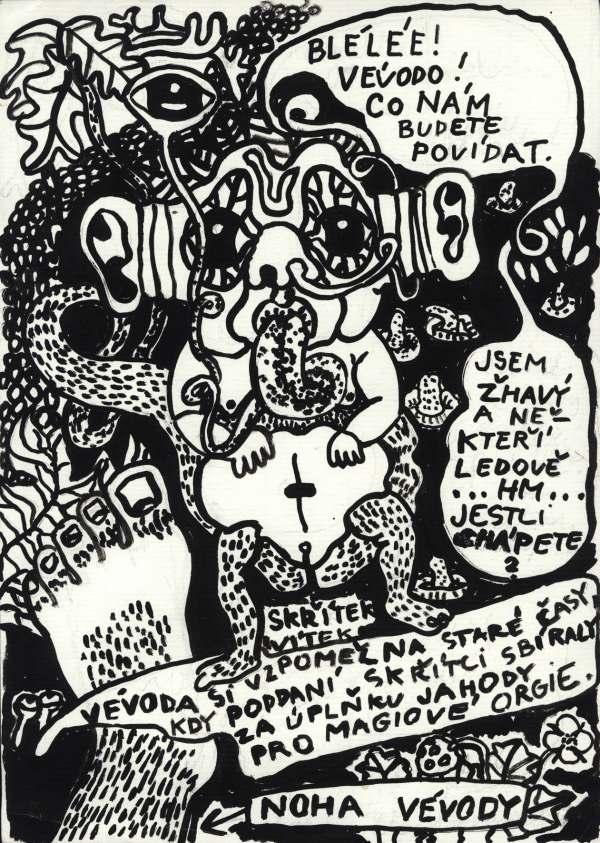 BLÉLÉE!
VÉVODO!
CO NÁM
BUDETE
POVÍDAT.
JSEM
ŽHAVÝ
A NĚ-
KTEŘÍ
LEDOVĚ
...HM...
JESTLI
CHÁPETE
?
SKŘÍTEK
VÍTEK
VÉVODA SI VZPOMĚL NA STARÉ ČASY
KDY PODDANÍ SKŘÍTCI SBÍRALY
ZA ÚPLŇKU JAHODY
PRO MAGIOVÉ ORGIE.
NOHA VÉVODY